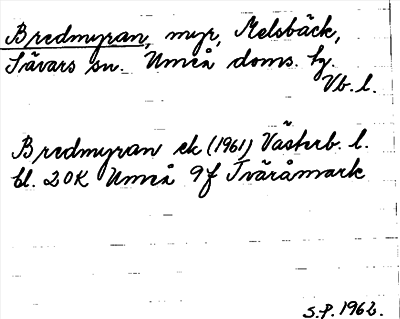 Bredmyran, myr, Melsbäck,
Sävars sn. Umeå doms. hg.
Vb. l.
Bredmyran ek (1961) Västerb. l.
bl. 20K Umeå 9f Tväråmark
S.P. 1962.